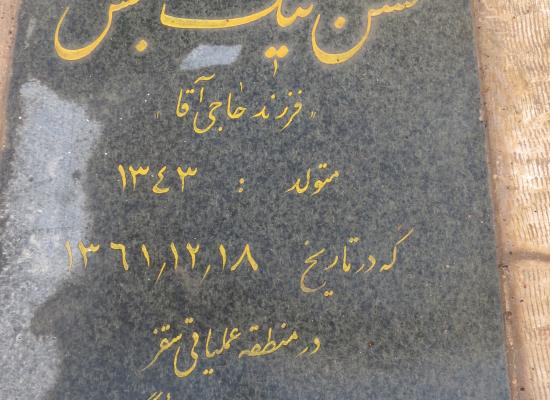 نیک
"فرزند حاجی آقا"
متولد : ۱۳٤۳
که در تاریخ ۱۳٦۱٫۱۲٫۱۸
در منطقه عملیاتی سقز